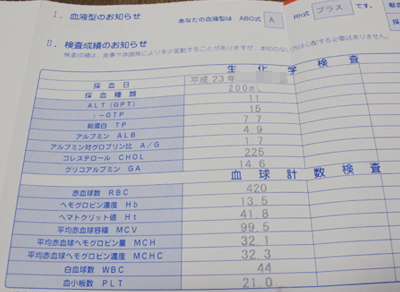 Ⅰ. 血液型のお知らせ
あなたの血液型は ABO式 A Rh式 プラス です。
Ⅱ. 検査成績のお知らせ
生化学検査
採血日 平成 23年
採血種類 200mL
ALT(GPT) 11
γ-GTP 15
総蛋白 TP 7.7
アルブミン ALB 4.9
アルブミン対グロブリン比 A/G 1.7
コレステロール CHOL 225
グリコアルブミン GA 14.6
血球計数検査
赤血球数 RBC 420
ヘモグロビン濃度 Hb 13.5
ヘマトクリット値 Ht 41.8
平均赤血球容積 MCV 99.5
平均赤血球ヘモグロビン量 MCH 32.1
平均赤血球ヘモグロビン濃度 MCHC 32.3
白血球数 WBC 44
血小板数 PLT 21.0